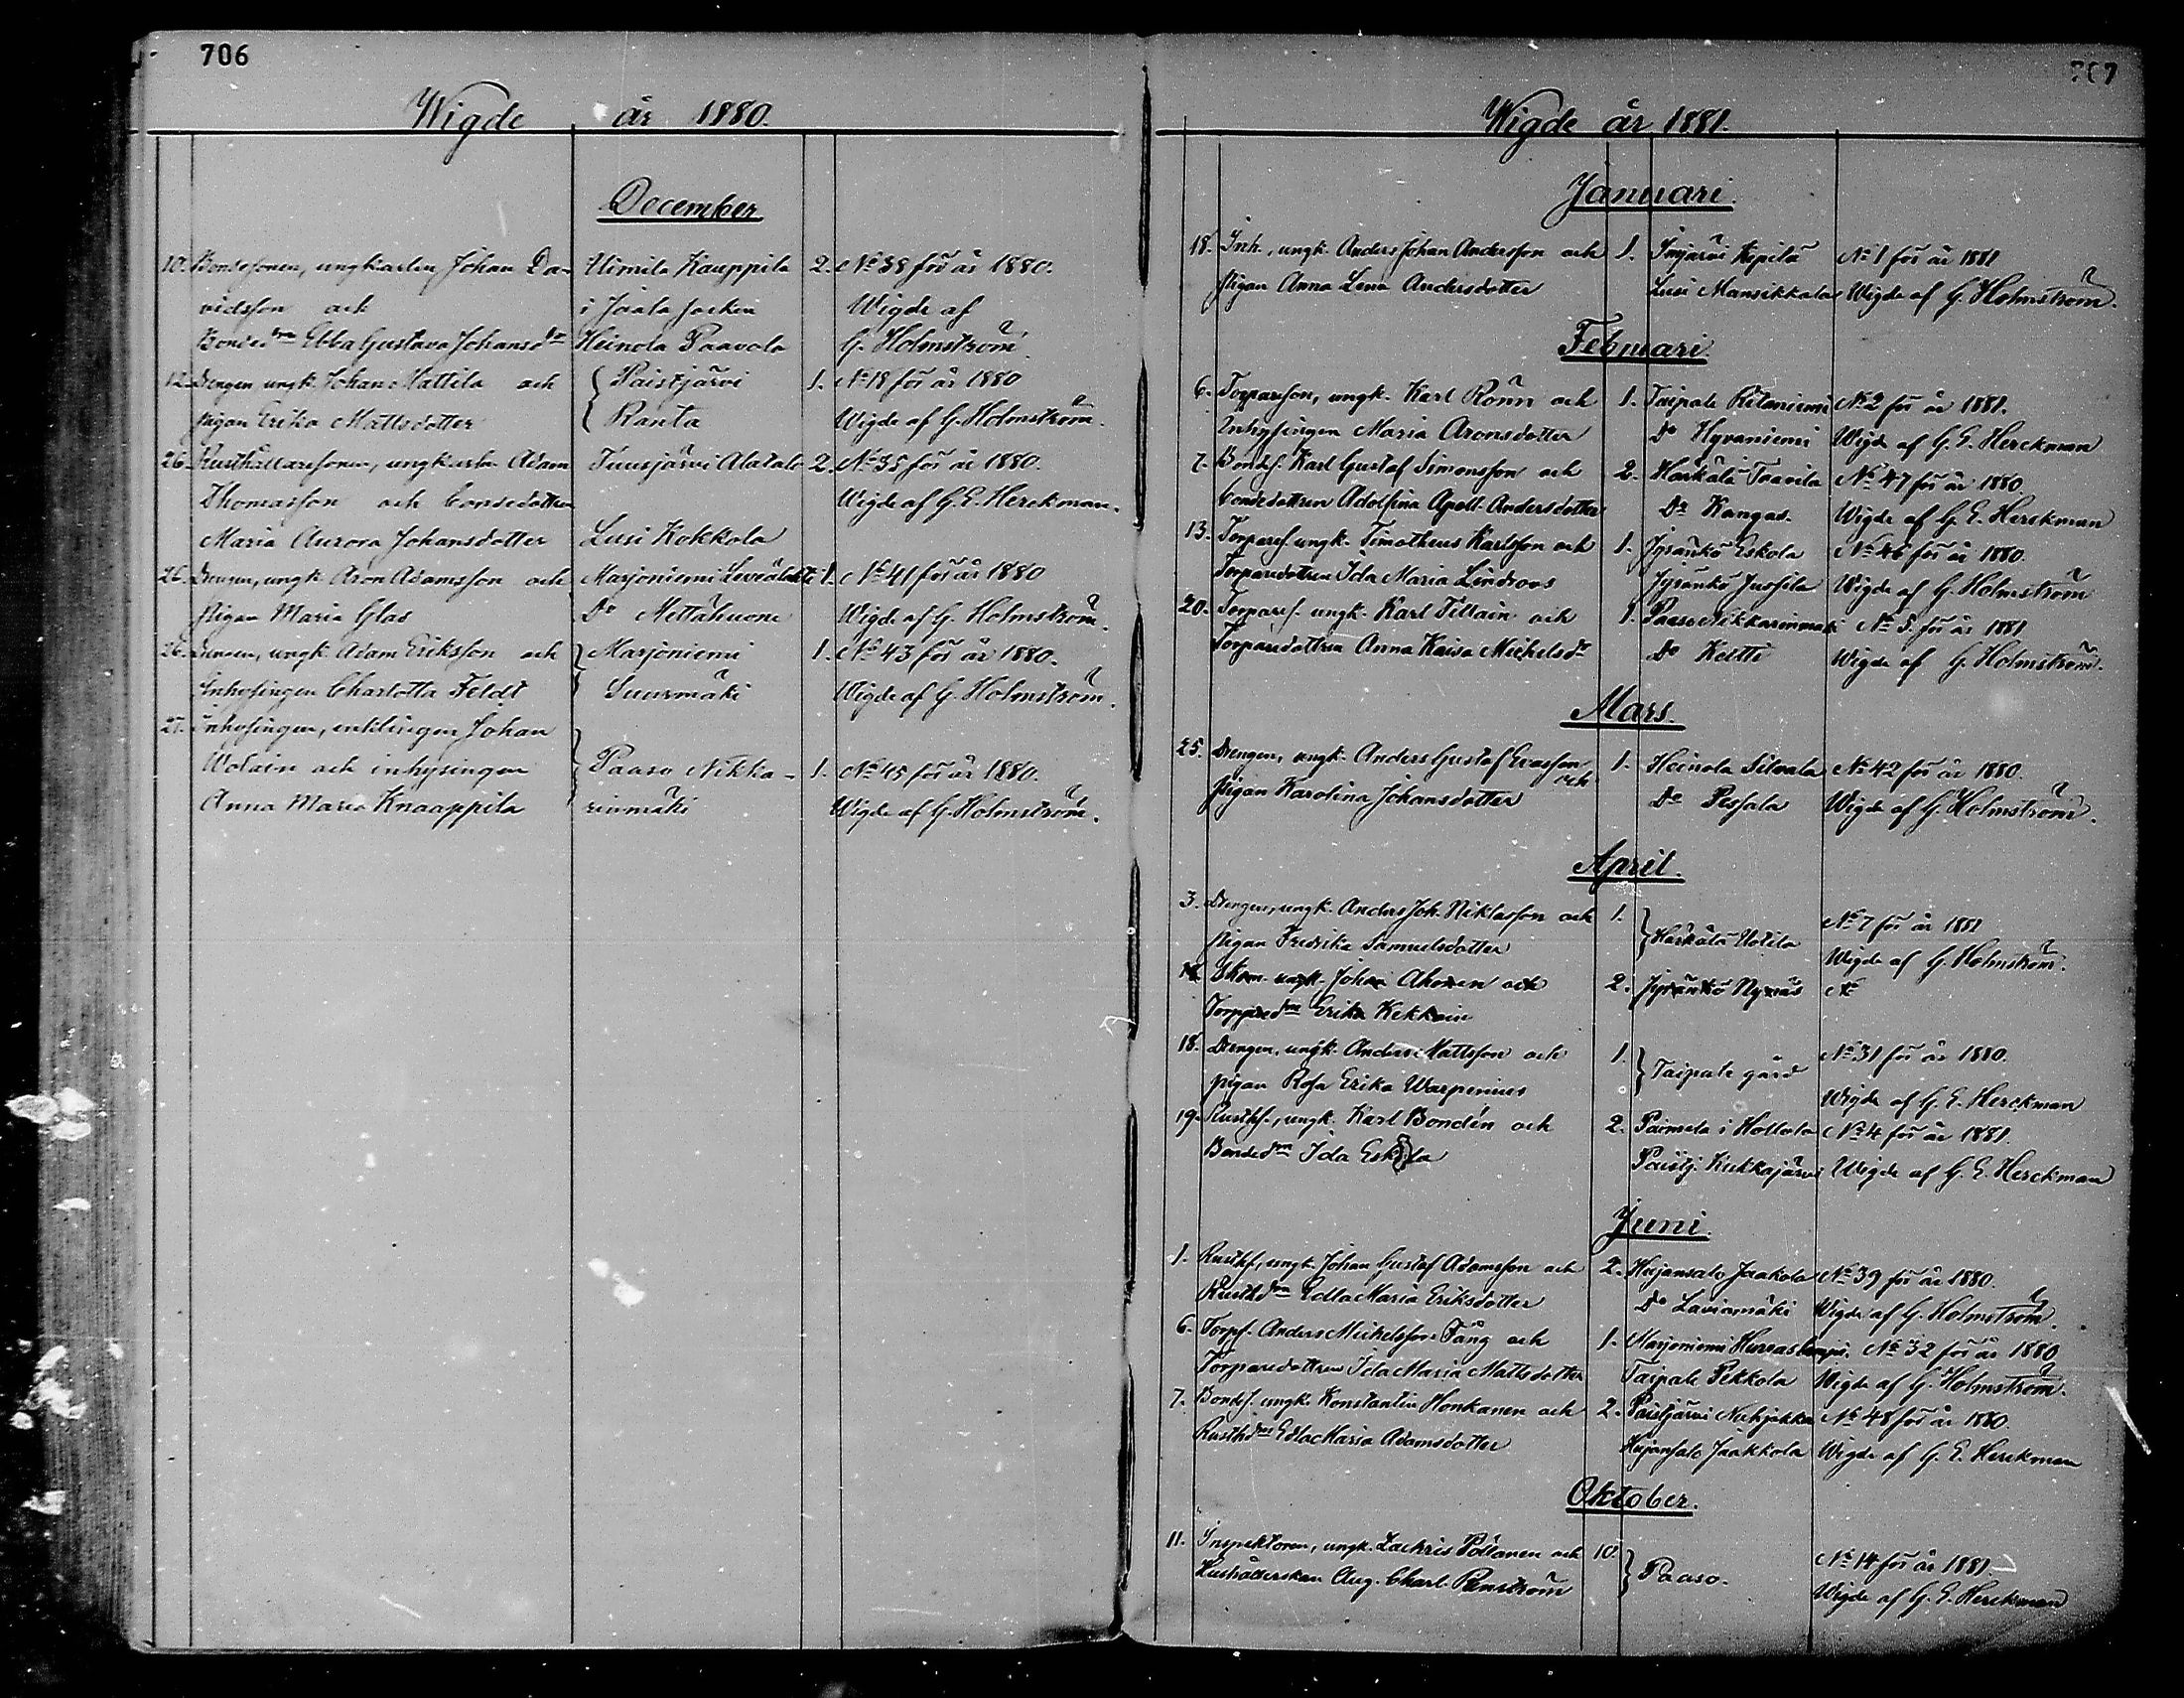 706
Wigde år 1880.
December
10. Bondesonen, ungkarlen Johan Da- Uimila Kauppila 2. No 38 för år 1880.
vidsson och i Jaala socken Wigde af
Bondedrn Ebba Gustava Johansdr Heinola Paavola G. Holmström.
12. Drengen, ungk. Johan Mattila och Paistjärvi 1. No 18 för år 1880
pigan Erika Mattsdotter Ranta Wigde af G. Holmström.
26. Rusthållaresonen, ungkarlen Adam Tuusjärvi Alatalo 2. No 35 för år 1880.
Thomasson och bondedottren Wigde af G. E. Herckman.
Maria Aurora Johansdotter Lusi Kokkola
26. Drengen, ungk. Aron Adamsson och Marjoniemi 1. No 41 för år 1880
pigan Maria Glas Do Wigde af G. Holmström.
26. Drengen, ungk. Adam Eriksson och Marjoniemi 1. No 43 för år 1880.
Inhysingen Charlotta Feldt Suurmäki Wigde af G. Holmström.
27. Inhysingen, enklingen Johan
Wolain och inhysingen Paaso Nikka- 1. No 45 för år 1880.
Anna Maria Knaappila rinmäki Wigde af G. Holmström.
707
Wigde år 1881.
Januari.
18. Inh., ungk. Anders Johan Andersson och 1. Imjärvi No 1 för år 1881
pigan Anna Lena Andersdotter Lusi Mansikkala Wigde af G. Holmström.
Februari.
6. Torpareson, ungk. Karl Rönn och 1. Taipale No 2 för år 1881.
Inhysingen Maria Aronsdotter Do Hyvaniemi Wigde af G. E. Herckman
7. Bondes. Karl Gustaf Simonsson och 2. Härkälä Taavila No 47 för år 1880
bondedottren Adolfina Apoll. Andersdotter Do Kangas. Wigde af G. E. Herckman
13. Torpares. ungk. Timotheus Karlsson och 1. Jyränkö Eskola No 46 för år 1880.
Torparedottren Ida Maria Lindroos Jyränkö Jussila Wigde af G. Holmström
20. Torpares. ungk. Karl Tillain och 1. Paaso Nikkarinmäki No 5 för år 1881
Torparedottren Anna Kaisa Michelsdr Do Keltti Wigde af G. Holmström.
Mars.
25. Drengen, ungk. Anders Gustaf Ersson 1. Heinola No 42 för år 1880.
och
pigan Karolina Johansdotter Do Wigde af G. Holmström.
April.
3. Drengen, ungk. Anders Joh. Niklasson och 1. Härkälä Uotila No 7 för år 1881
pigan Fredrika Samuelsdotter Wigde af G. Holmström.
ungk. Johan Ahonen och 2. Jyränkö Nynäs No
Torparedrn Erika Kekkoin
18. Drengen, ungk. Anders Mattsson och 1. Taipale gård No 31 för år 1880.
pigan Rosa Erika Warpenius Wigde af G. E. Herckman
19. Rusths., ungk. Karl Bondén och 2. Paimela i Hollola No 4 för år 1881.
Bondedrn Ida Eskola Paistj. Kukkajärvi Wigde af G. E. Herckman
Juni.
1. Rusths, ungk. Johan Gustaf Adamsson och 2. Hujansalo Jaakola No 39 för år 1880.
Rusthdrn Edla Maria Eriksdotter Do Laviamäki Wigde af G. Holmström.
6. Torps. Anders Michelsson Fång och 1. Marjoniemi No 32 för år 1880
Torparedottren Ida Maria Mattsdotter Taipale Pekkola Wigde af G. Holmström.
7. Bondes. ungk. Konstantin Honkanen och 2. Paistjärvi No 48 för år 1880.
Rusthdrn Edla Maria Adamsdotter Hujansalo Jaakkola Wigde af G. E. Herckman
Oktober.
11. Inspektoren, ungk. Zachris Pöllänen och 10. Paaso. No 14 för år 1881.
Hushållerskan Aug. Charl. Wigde af G. E. Herckman